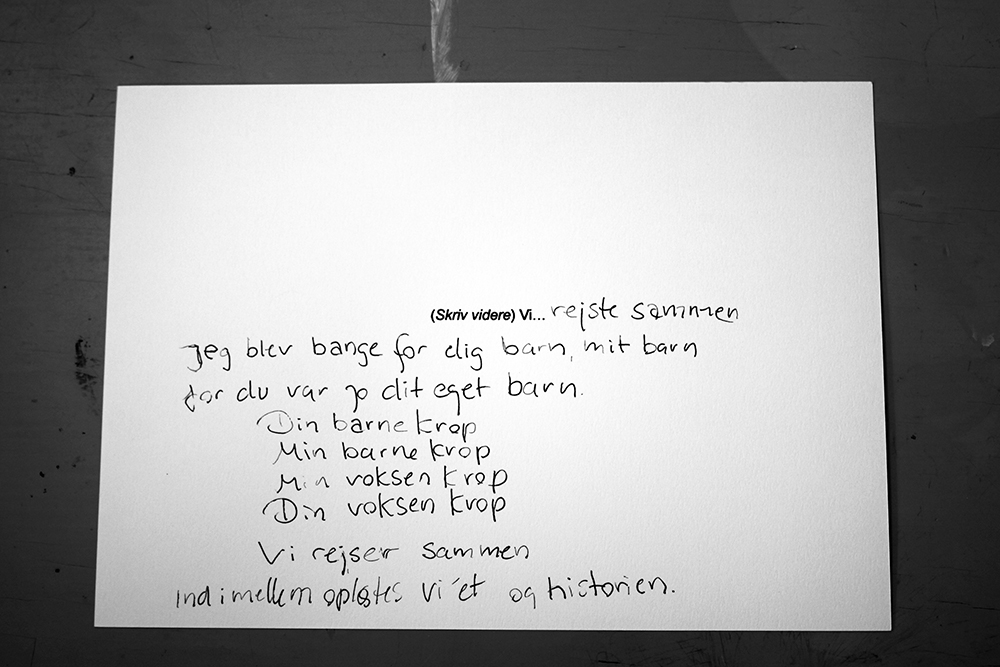 (Skriv videre) Vi... rejste sammen
Jeg blev bange for dig barn, mit barn
for du var jo dit eget barn.
Din barne krop
Min barne krop
Min voksen krop
Din voksen krop
Vi rejser sammen
ind imellem opløstes vi'et og historien.